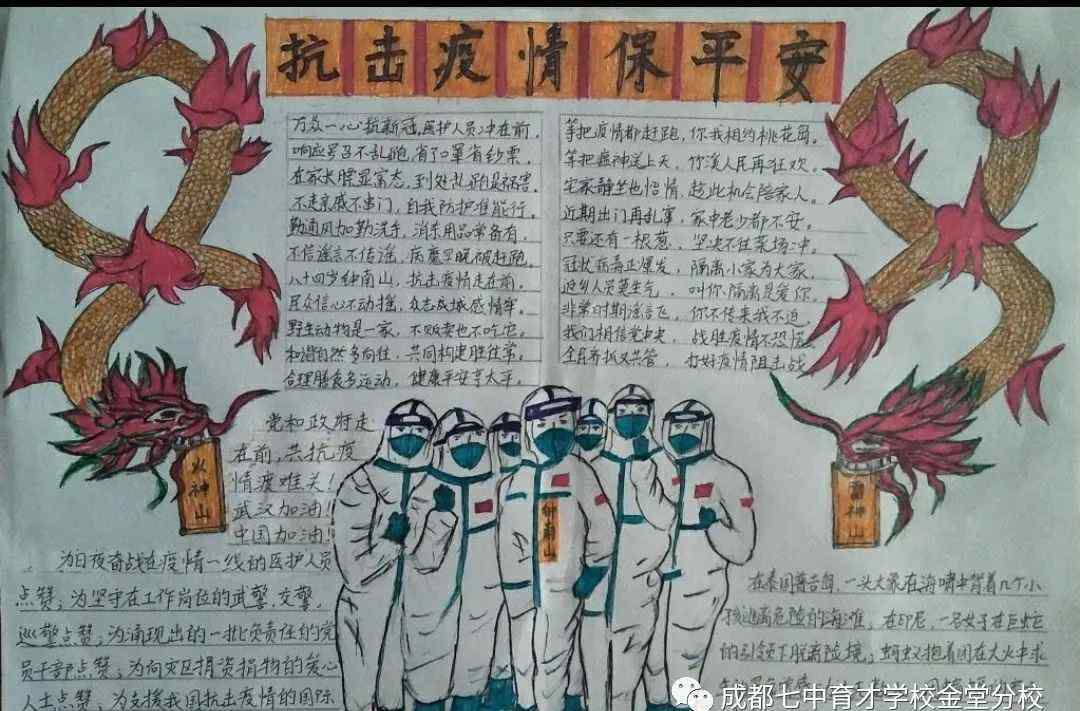 抗击疫情保平安
万众一心抗新冠,医护人员冲在前.
响应号召不乱跑,省了口罩省钞票.
在家长膘显富态,到处乱跑是祸害.
不走亲戚不串门,自我防护准能行.
勤通风加勤洗手,消杀用品常备有.
不信谣言不传谣,病魔早晚被赶跑.
八十四岁钟南山,抗击疫情走在前.
民众信心不动摇,众志成城感情牢.
野生动物是一家,不贩卖也不吃它.
和谐自然多向往,共同构建胜往常.
合理膳食多运动,健康平安享太平.
等把疫情都赶跑,你我相约桃花岛.
等把瘟神送上天,竹溪人民再狂欢.
宅家静坐也怡情,趁此机会陪家人.
近期出门再乱窜,家中老少都不安.
只要还有一根葱,坚决不往菜场冲.
冠状病毒正爆发,隔离小家为大家.
返乡人员莫生气,叫你隔离是爱你.
非常时期谣言飞,你不传来我不追.
我们相信党中央,战胜疫情不恐慌.
全民齐抓又共管,打好疫情阻击战
党和政府走
在前,共抗疫
情渡难关!
武汉加油!
中国加油!
火神山
钟南山
雷神山
为日夜奋战在疫情一线的医护人员
点赞;为坚守在工作岗位的武警,交警,
巡警点赞;为涌现出的一批负责任的党
员干部点赞;为向灾区捐资捐物的爱心
人士点赞,为支援我国抗击疫情的国际
在泰国普吉岛,一头大象在海啸中背着几个小
孩逃离危险的海滩;在印尼,一名女子在巨蛇
的引领下脱离险境;蚂蚁抱着团在大火中求
成都七中育才学校金堂分校